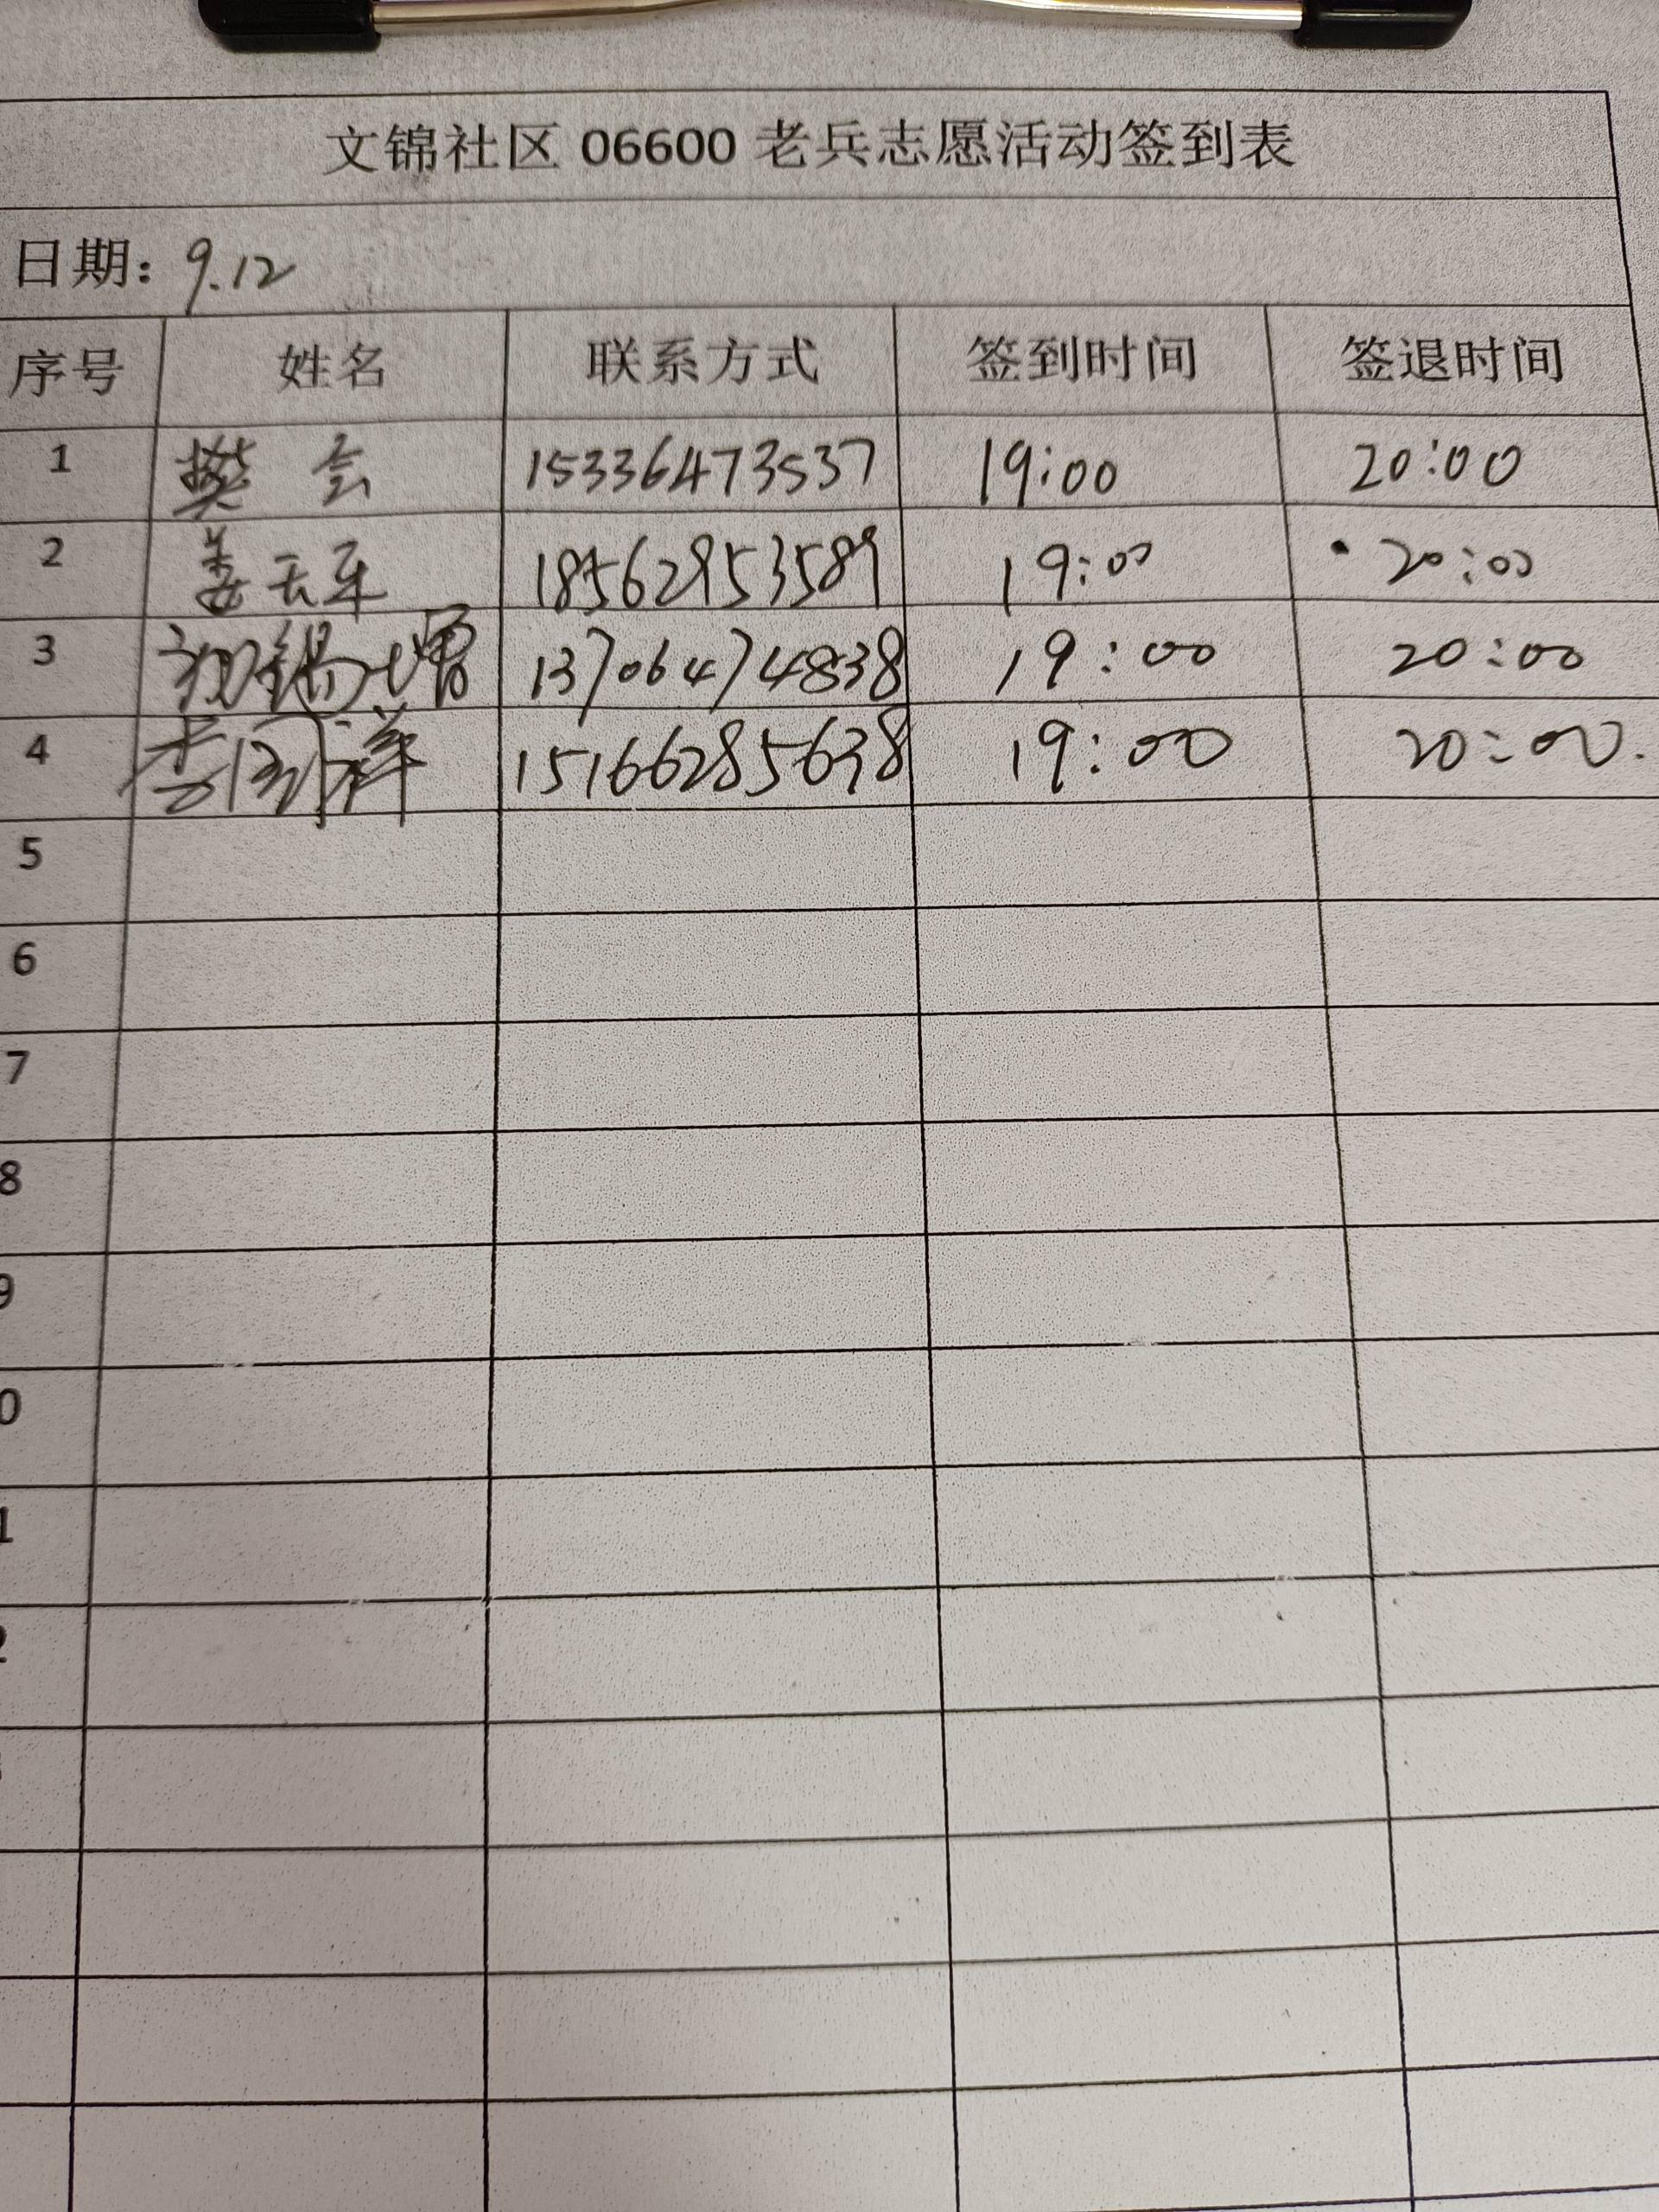 文锦社区 06600 老兵志愿活动签到表
日期: 9.12
序号 姓名 联系方式 签到时间 签退时间
1 樊会 15336473537 19:00 20:00
2 姜 18562953589 19:00 20:00
3 锡增 13706474838 19:00 20:00
4 李同祥 15166285638 19:00 20:00.
5
6
7
8
9
0
1
2